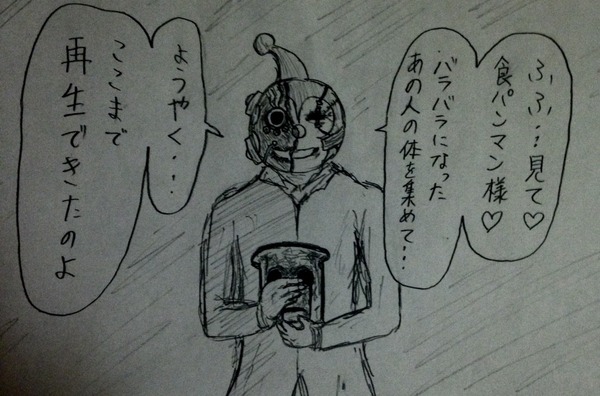 ふふ…見て♡
食パンマン様♡
バラバラになった
あの人の体を集めて…
ようやく…
ここまで
再生できたのよ